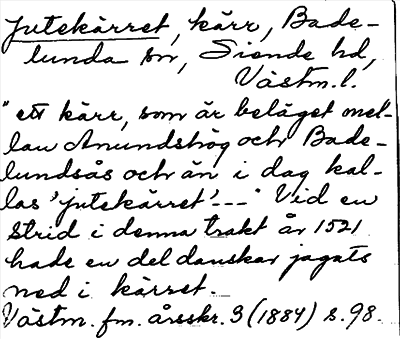 Jutekärret, kärr, Bade-
lunda sn, Siende hd,
Västm.l.
"ett kärr, som är beläget mel-
lan Anundshög och Bade-
lundsås och än i dag kal-
las 'jutekärret'---" Vid en
strid i denna trakt år 1521
hade en del danskar jagats
ned i kärret.
Västm. fm. årsskr. 3 (1884) s. 98.